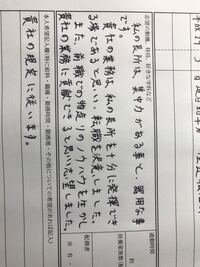 志望の動機、特技、好きな学科など
私の長所は、集中力がある事と、器用な事
です。
貴社の業務は、私の長所を十分に発揮でき
る場であると思い、転職を決意しました。
また、前職での物作りのノウハウを生かし
貴社の業務に貢献できると思い志望しました。
通勤時間
約
扶養家族数
配偶者
※ 有・
本人希望記入欄(特に給料・職種・勤務時間・勤務地・その他についての希望があれば記入)
貴社の規定に従います。